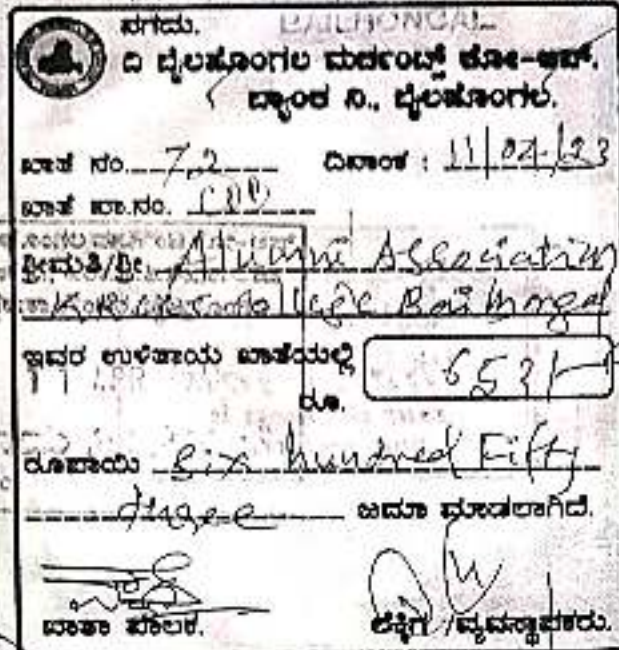 ನಗದು. BAILHONGAL
ದಿ ಬೈಲಹೊಂಗಲ ಮರ್ಚಂಟ್ಸ್ ಕೋ-ಆಪ್.
ಬ್ಯಾಂಕ ನಿ., ಬೈಲಹೊಂಗಲ.
ಖಾತೆ ನಂ. 72 ದಿನಾಂಕ : 11/04/23
ಖಾತೆ ಖಾ.ನಂ.
ಶ್ರೀಮತಿ/ಶ್ರೀ Alumni Association
College Bailhongal
ಇವರ ಉಳಿತಾಯ ಖಾತೆಯಲ್ಲಿ
ರೂ. 653/-
ರೂಪಾಯಿ six hundred Fifty
three ಜಮಾ ಮಾಡಲಾಗಿದೆ.
ಖಾತಾ ಪಾಲಕ. ಲೆಕ್ಕಿಗ /ವ್ಯವಸ್ಥಾಪಕರು.